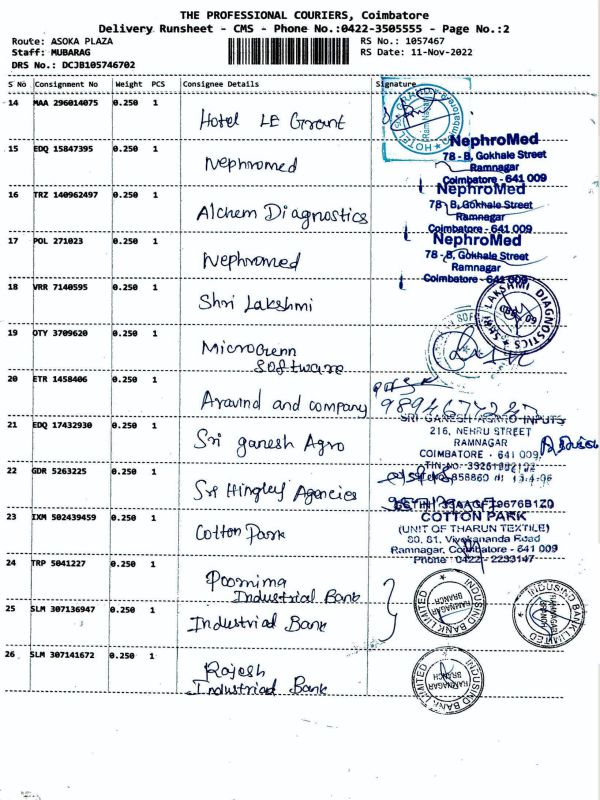 THE PROFESSIONAL COURIERS, Coimbatore
Delivery Runsheet - CMS - Phone No.:0422-3505555 - Page No.:2
Route: ASOKA PLAZA
Staff: MUBARAG
DRS No.: DCJB105746702
RS No.: 1057467
RS Date: 11-Nov-2022
S No Consignment No Weight PCS Consignee Details Signature
14 MAA 296014075 0.250 1 Hotel LE Grant
15 EDQ 15847395 0.250 1 Nephromed
NephroMed
78 - B, Gokhale Street
Ramnagar
Coimbatore - 641 009
16 TRZ 140962497 0.250 1 Alchem Diagnostics
NephroMed
78 - B, Gokhale Street
Ramnagar
Coimbatore - 641 009
17 POL 271023 0.250 1 Nephromed
NephroMed
78 - B, Gokhale Street
Ramnagar
Coimbatore - 641 009
18 VRR 7140595 0.250 1 Shri Lakshmi
SHRI LAKSHMI DIAGNOSTICS
19 OTY 3709620 0.250 1 Microgenn Software
20 ETR 1458406 0.250 1 Aravind and company
21 EDQ 17432930 0.250 1 Sri ganesh Agro
SRI GANESH AGRO INPUTS
216, NEHRU STREET
RAMNAGAR
COIMBATORE - 641 009
22 GDR 5263225 0.250 1 Sri Hingley Agencies
23 IXM 502439459 0.250 1 Cotton Park
COTTON PARK
(UNIT OF THARUN TEXTILE)
80, 81, Vivekananda Road
Ramnagar, Coimbatore - 641 009
Phone : 0422 - 2233147
24 TRP 5041227 0.250 1 Poornima Industrial Bank
INDUSIND BANK LIMITED
RAMNAGAR BRANCH
INDUSIND BANK LIMITED
RAMNAGAR BRANCH
25 SLM 307136947 0.250 1 Industrial Bank
26 SLM 307141672 0.250 1 Rajesh Industrial Bank
INDUSIND BANK LIMITED
RAMNAGAR BRANCH